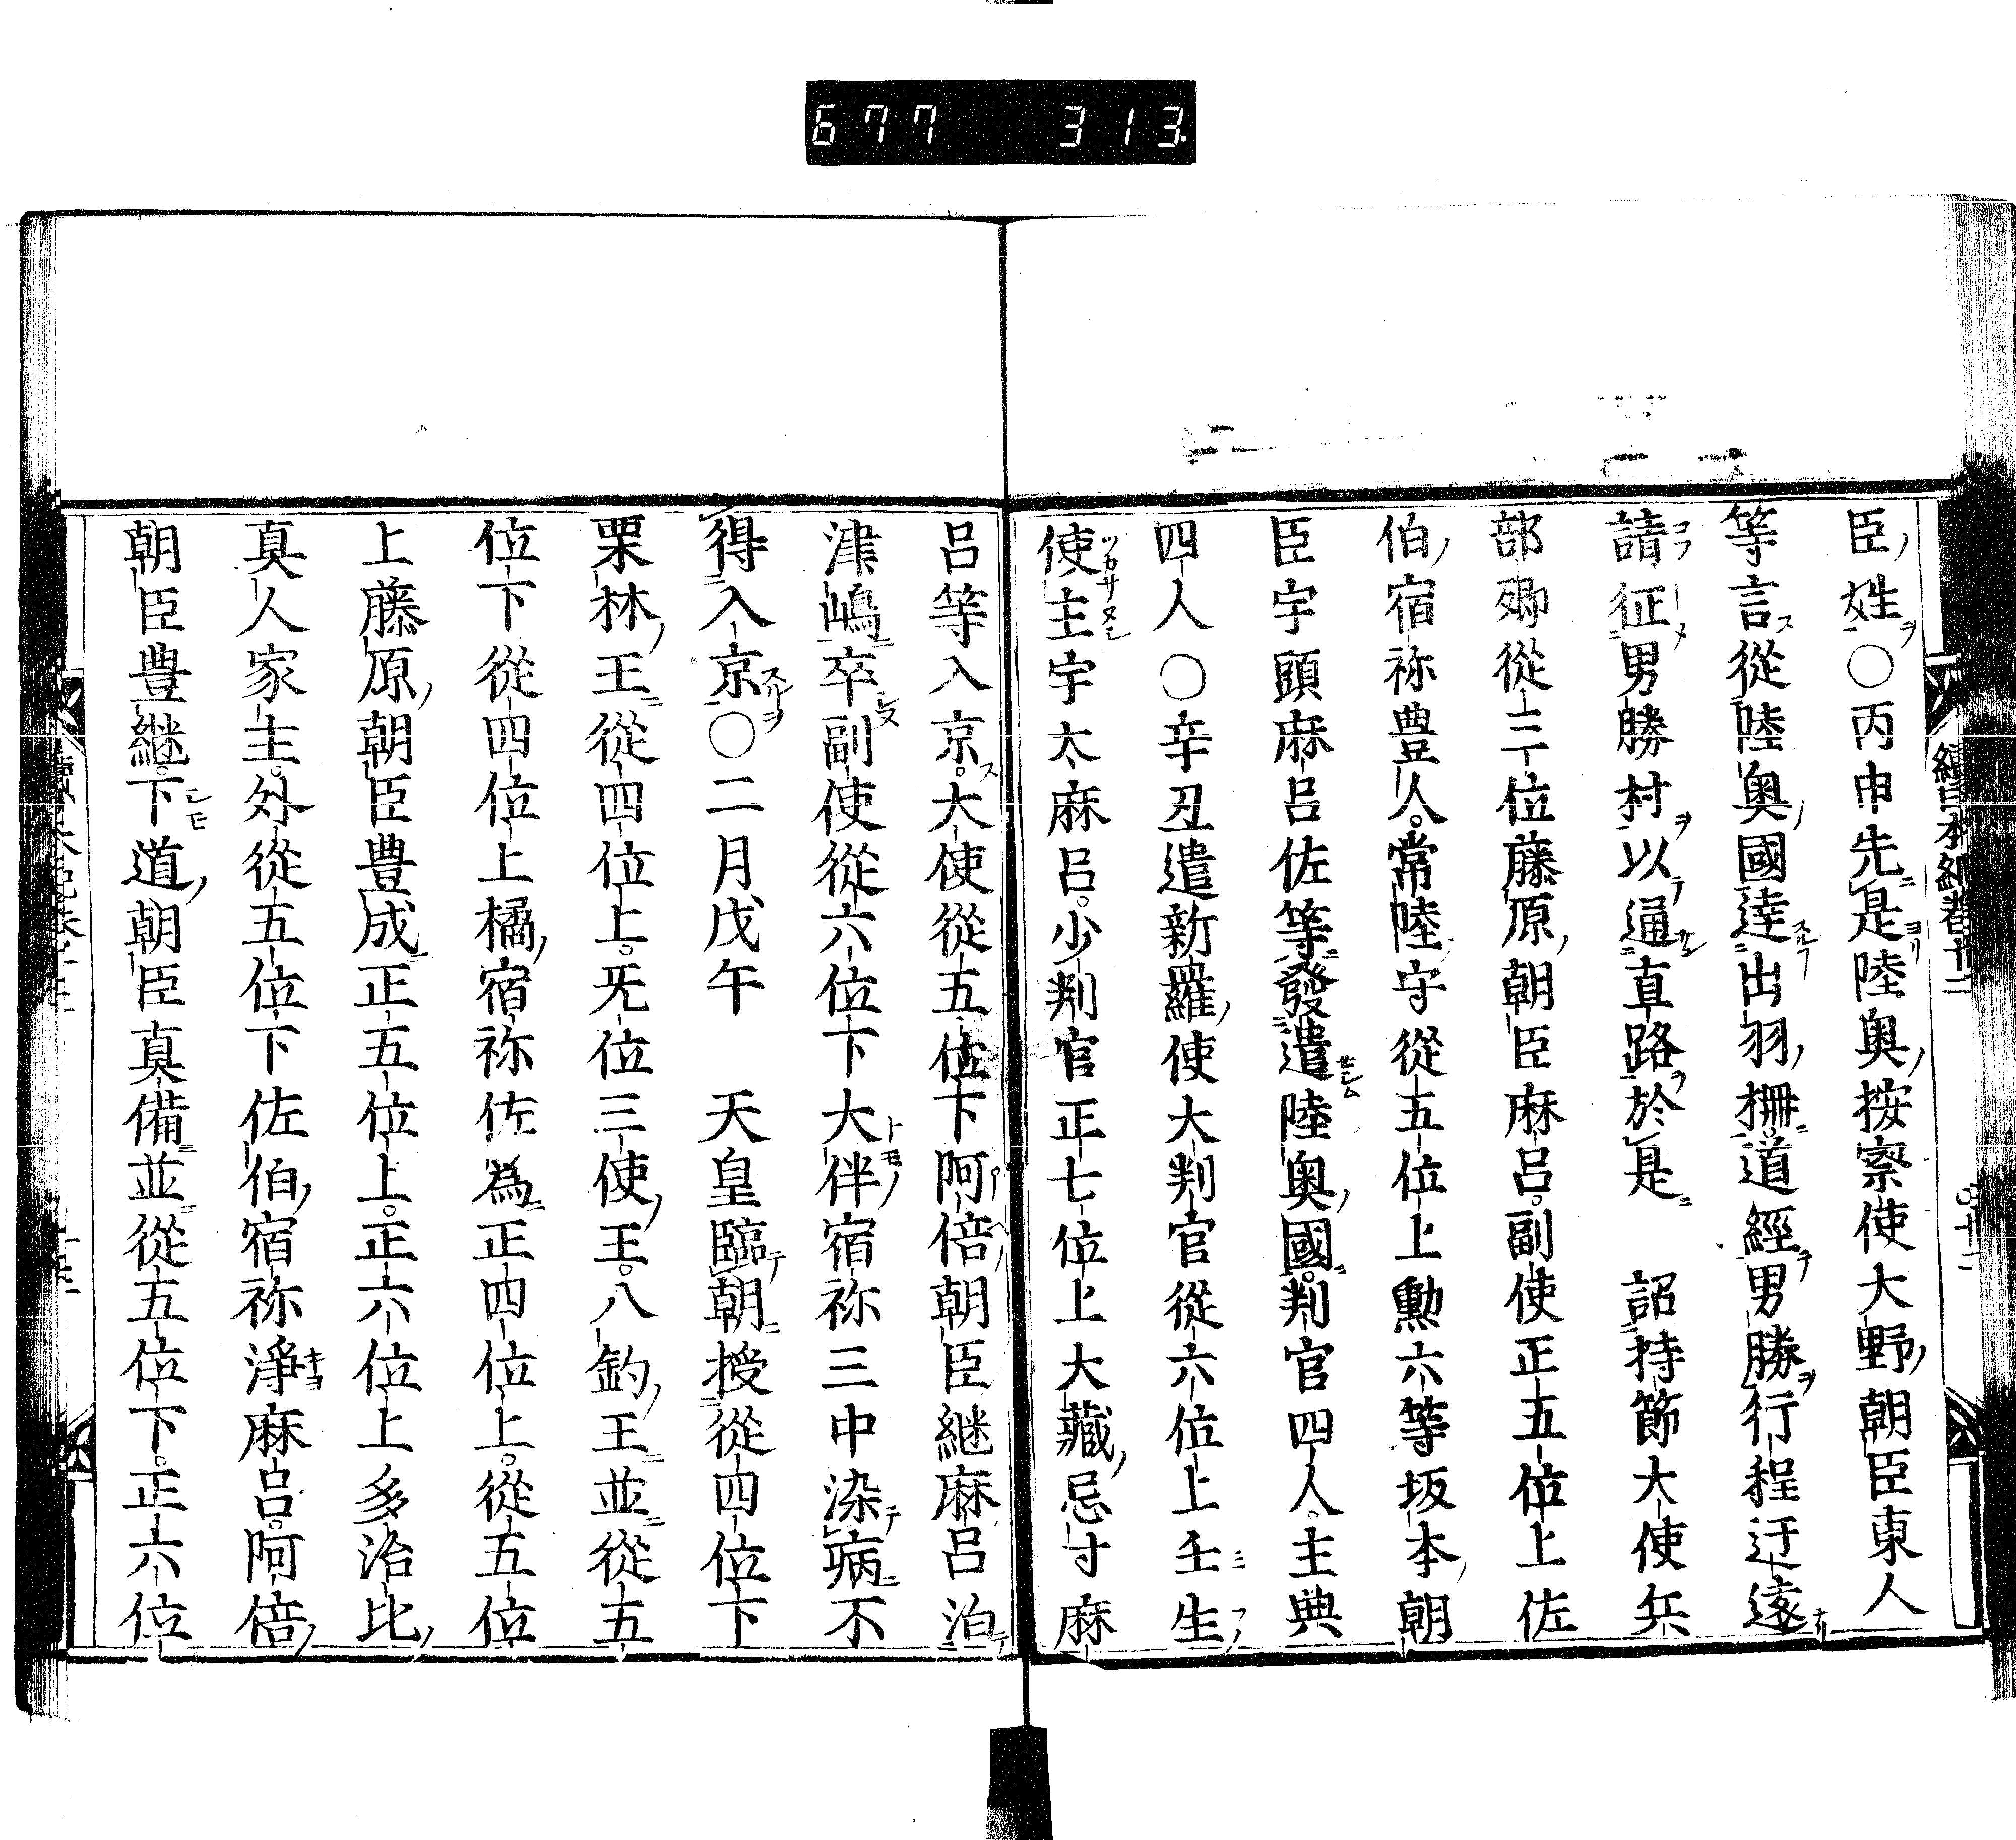 677 313
續日本紀卷十二
臣姓○丙申先是陸奥按察使大野朝臣東人
等言從陸奥國達出羽柵道經男勝行程迂遠
請征男勝村以通直路於是 詔持節大使兵
部卿從三位藤原朝臣麻呂副使正五位上佐
伯宿祢豊人常陸守從五位上勲六等坂本朝
臣宇頭麻呂佐等發遣陸奥國判官四人主典
四人○辛丑遣新羅使大判官從六位上壬生
使主宇太麻呂少判官正七位上大藏忌寸麻
呂等入京大使從五位下阿倍朝臣継麻呂泊
津嶋卒副使從六位下大伴宿祢三中染病不
得入京○二月戊午 天皇臨朝授從四位下
栗林王從四位上无位三使王八釣王並從五
位下從四位上橘宿祢佐為正四位上從五位
上藤原朝臣豊成正五位上正六位上多治比
真人家主外從五位下佐伯宿祢淨麻呂阿倍
朝臣豊継下道朝臣真備並從五位下正六位